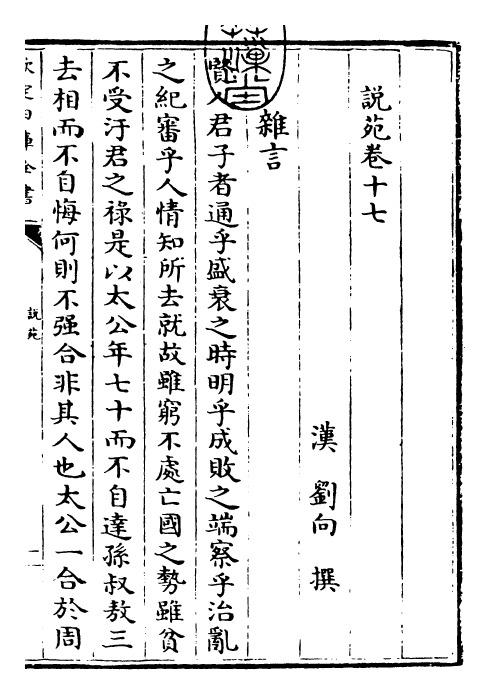 說苑卷十七
漢 劉向 撰
雜言
賢人君子者通乎盛衰之時明乎成敗之端察乎治亂
之紀審乎人情知所去就故雖窮不處亡國之勢雖貧
不受汙君之祿是以太公年七十而不自達孫叔敖三
去相而不自悔何則不强合非其人也太公一合於周
欽定四庫全書
說苑
一